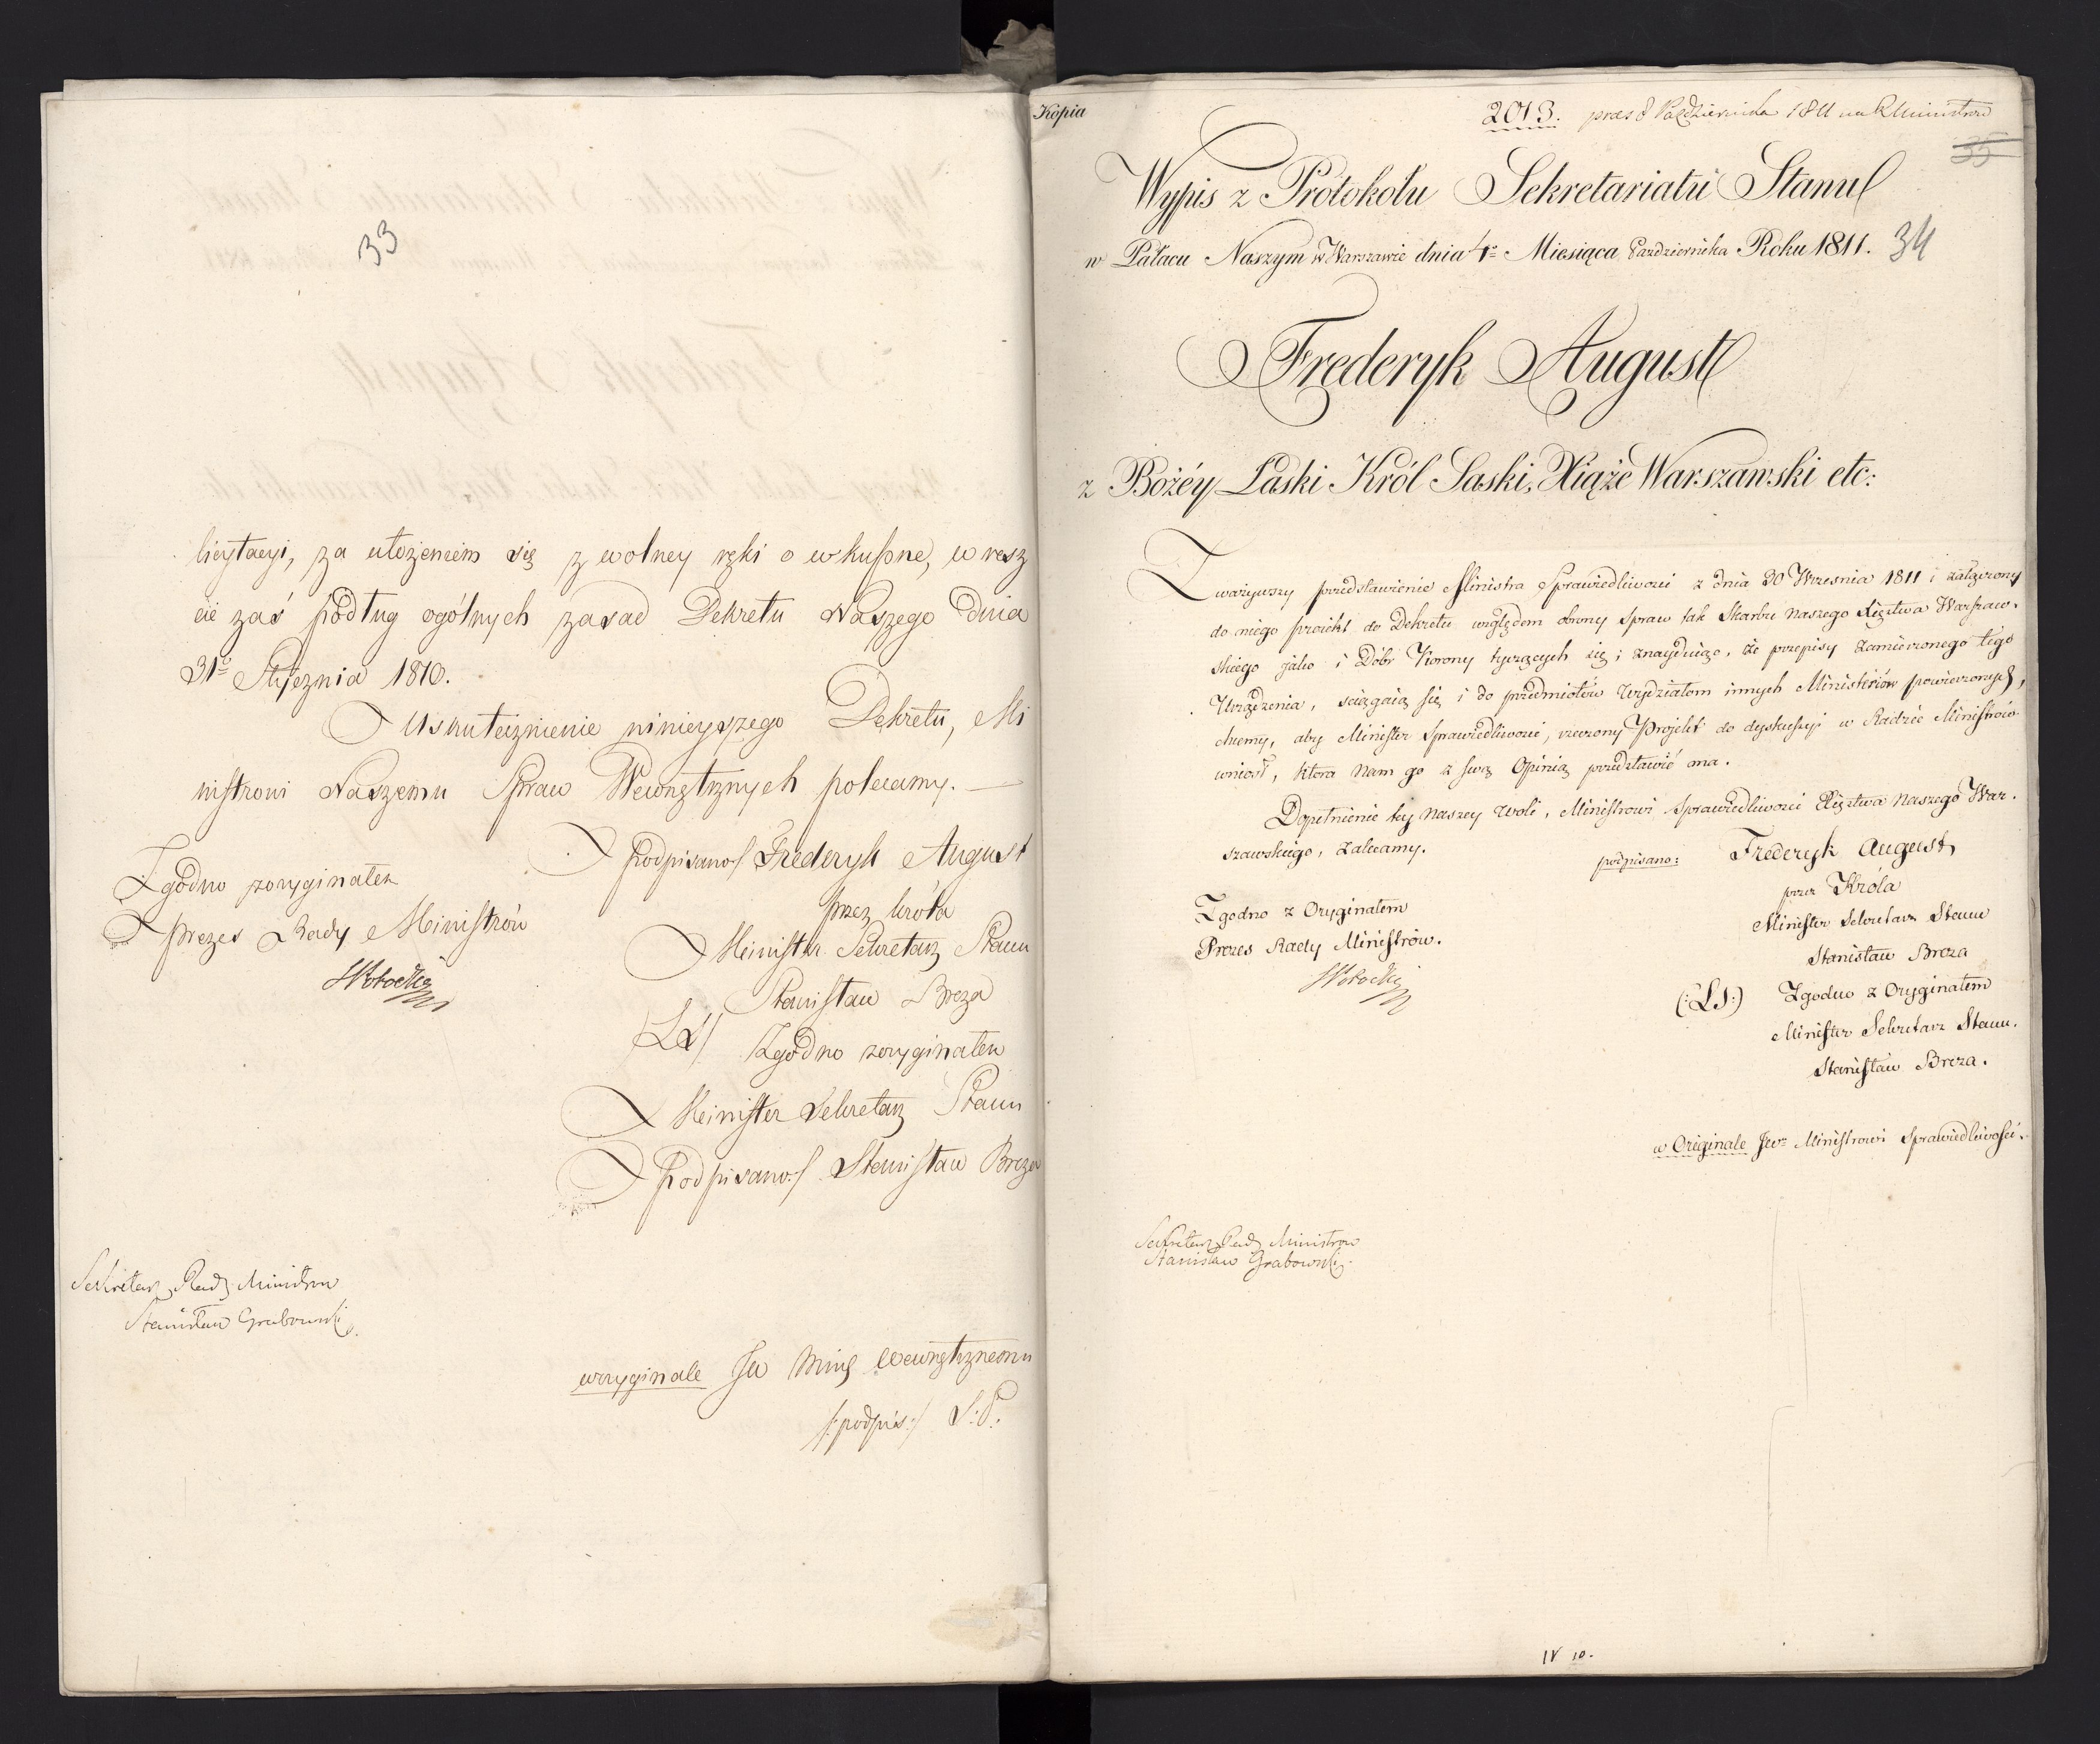 33
licytacyi, za ułożeniem się z wolney ręki o wkupne, w resz
cie zaś podług ogólnych zasad Dekretu Naszego dnia
31º Stycznia 1810.
Uskutecznienie ninieyszego Dekretu, Mi
nistrowi Naszemu Spraw Wewnętrznych polecamy. —
podpisano/ Frederyk August
przez króla
Minister Sekretarz Stanu
Stanisław Breza
/LS/ Zgodno zoryginałem
Minister Sekretarz Stanu
Podpisano:/ Stanisław Breza
Zgodno zoryginałem
Prezes Rady Ministrów
Sekretarz Rady Ministrow
Stanisław Grabowski
woryginale JW Ming Wewnętrznemu
/:podpis:/ S:B:
Kopia
2013. praes 8 Października 1811 na R Ministrow
35
Wypis z Protokołu Sekretariatu Stanu
w Pałacu Naszym w Warszawie dnia 4º Miesiąca Października Roku 1811.
34
Frederyk August
z Bożéy Łaski Król Saski, Xiąże Warszawski etc:
Zważywszy przedstawienie Ministra Sprawiedliwości z dnia 30 Wrzesnia 1811 i załączony
do niego projekt do Dekretu względem obrony spraw tak Skarbu naszego Xięztwa Warszaw.
skiego jako i Dóbr Korony tyczących się; znayduiąc, że przepisy zamierzonego tego
Urządzenia, sciągaią się i do przedmiotów wydziałom innych Ministeriów powierzonych,
chcemy, aby Minister Sprawiedliwości, rzeczony Projekt do dyskussyi w Radzie Ministrów
wniosł, która Nam go z swą Opinią przedstawić ma.
Dopełnienie tey Naszey woli, Ministrowi Sprawiedliwości Xięztwa Naszego War.
szawskiego, zalecamy.
podpisano: Frederyk August,
przez Króla
Minister Sekretarz Stanu
Stanisław Breza
(:LS:) Zgodno z Oryginałem
Minister Sekretarz Stanu.
Stanisław Breza.
Zgodno z Oryginałem
Prezes Rady Ministrów.
w Originale JWº Ministrowi Sprawiedliwości.
Sekretarz Rady Ministrow
Stanisław Grabowski.
IV 10.